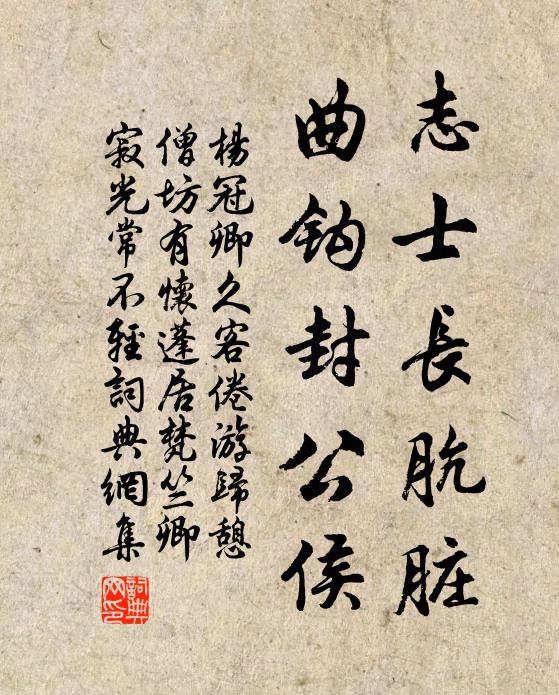 志士長肮脏
曲鈎封公侯
楊冠卿久客倦游歸憩
僧坊有懷蓬居梵竺卿
寂光常不輕詞典網集
詞典网印